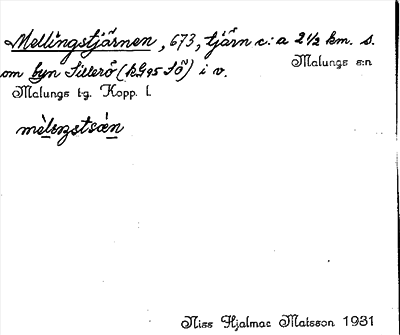 Mellingstjärnen, 673, tjärn c:a 2½ km. s.
om byn Sillerö (RG95 SÖ) i v.
Malungs s:n
Malungs tg. Kopp. l.
Niss Hjalmar Matsson 1931